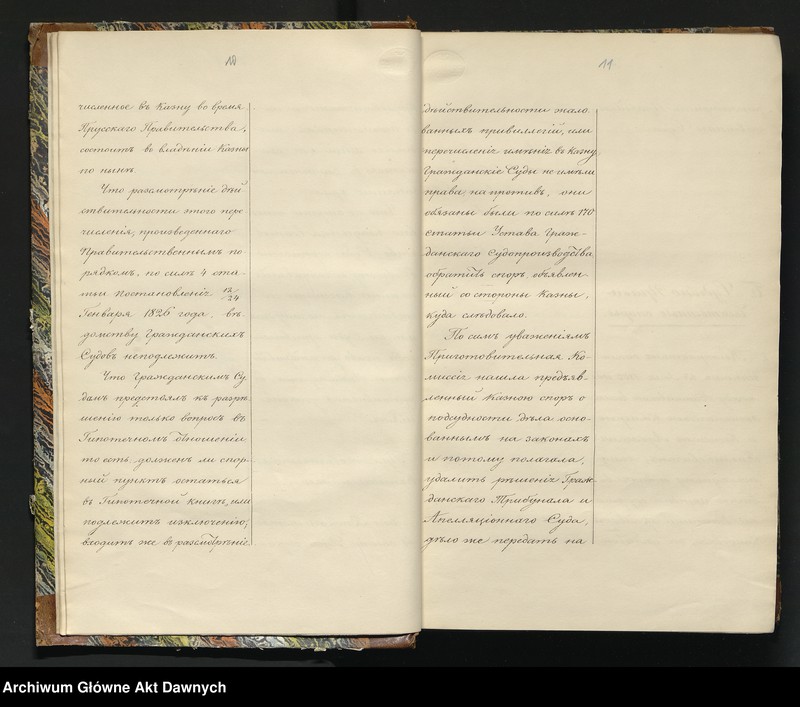 10
численное въ Казну во время
Прусскаго Правительства,
состоитъ во владѣніи Казны
по нынѣ.
Что разсмотрѣніе дѣй
ствительности этого пере
численія, произведеннаго
Правительственнымъ по
рядкомъ, по силѣ 4 ста-
тьи Постановленія 12/24
Генваря 1826 года, вѣ-
домству Гражданскихъ
Судовъ неподлежитъ.
Что Гражданскимъ Су
дамъ предстоялъ къ разрѣ
шенію только вопросъ въ
Гипотечномъ отношеніи
то есть, долженъ ли спор-
ный пунктъ остаться
въ Гипотечной книгѣ, или
подлежитъ изключенію,
входить же въ разсмотрѣніе
11
дѣйствительности жало
ванныхъ привиллегій, или
перечисленія имѣнія въ казну
Гражданскіе Суды не имѣли
права, на противъ, они
обязаны были по силѣ 170
статьи Устава Граж-
данскаго Судопроизводства
обратить споръ, объявлен-
ный со стороны Казны,
куда слѣдовало.
По симъ уваженіямъ
Приготовительная Ко-
миссія нашла предъяв-
ленный Казною споръ о
подсудности дѣла осно-
ваннымъ на законахъ
и потому полагала,
удалить рѣшенія Граж
данскаго Трибунала и
Апелляціоннаго Суда,
дѣло же передать на
Archiwum Główne Akt Dawnych